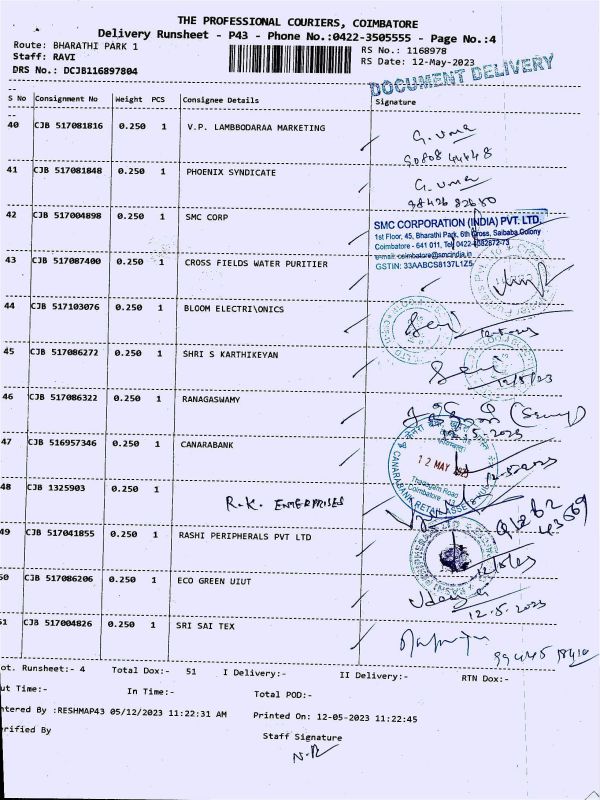 THE PROFESSIONAL COURIERS, COIMBATORE
Delivery Runsheet - P43 - Phone No.:0422-3505555 - Page No.:4
Route: BHARATHI PARK 1
RS No.: 1168978
Staff: RAVI
RS Date: 12-May-2023
DRS No.: DCJB116897804
DOCUMENT DELIVERY
S No Consignment No Weight PCS Consignee Details Signature
40 CJB 517081816 0.250 1 V.P. LAMBBODARAA MARKETING
G. Uma
90808 44848
41 CJB 517081848 0.250 1 PHOENIX SYNDICATE
G. Uma
98426 82680
42 CJB 517004898 0.250 1 SMC CORP
SMC CORPORATION (INDIA) PVT. LTD.
1st Floor, 45, Bharathi Park, 6th Cross, Saibaba Colony
Coimbatore - 641 011, Tel: 0422-
e-mail: coimbatore@smcindia.in
GSTIN: 33AABCS8137L1Z5
43 CJB 517087400 0.250 1 CROSS FIELDS WATER PURITIER
44 CJB 517103076 0.250 1 BLOOM ELECTRI\ONICS
45 CJB 517086272 0.250 1 SHRI S KARTHIKEYAN
12/5/23
46 CJB 517086322 0.250 1 RANAGASWAMY
12.5.2023
47 CJB 516957346 0.250 1 CANARABANK
12 MAY 2023
12-5-2023
Thadagam Road
Coimbatore
CANARA BANK RETAIL ASSET
48 CJB 1325903 0.250 1
R.K. ENTERPRISES
49 CJB 517041855 0.250 1 RASHI PERIPHERALS PVT LTD
50 CJB 517086206 0.250 1 ECO GREEN UIUT
Udaya
12.5.2023
51 CJB 517004826 0.250 1 SRI SAI TEX
ot. Runsheet:- 4 Total Dox:- 51 I Delivery:- II Delivery:- RTN Dox:-
ut Time:- In Time:- Total POD:-
ntered By :RESHMAP43 05/12/2023 11:22:31 AM Printed On: 12-05-2023 11:22:45
erified By Staff Signature
N.R